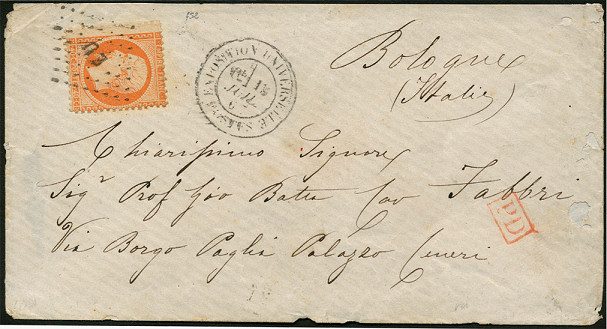 EXPOSITION UNIVERSELLE
JUIL
Bologne
(Italie)
Chiarissimo Signore
Sigr Prof Gio Batta Cav Fabbri
Via Borgo Paglia Palazzo Ceneri
PD